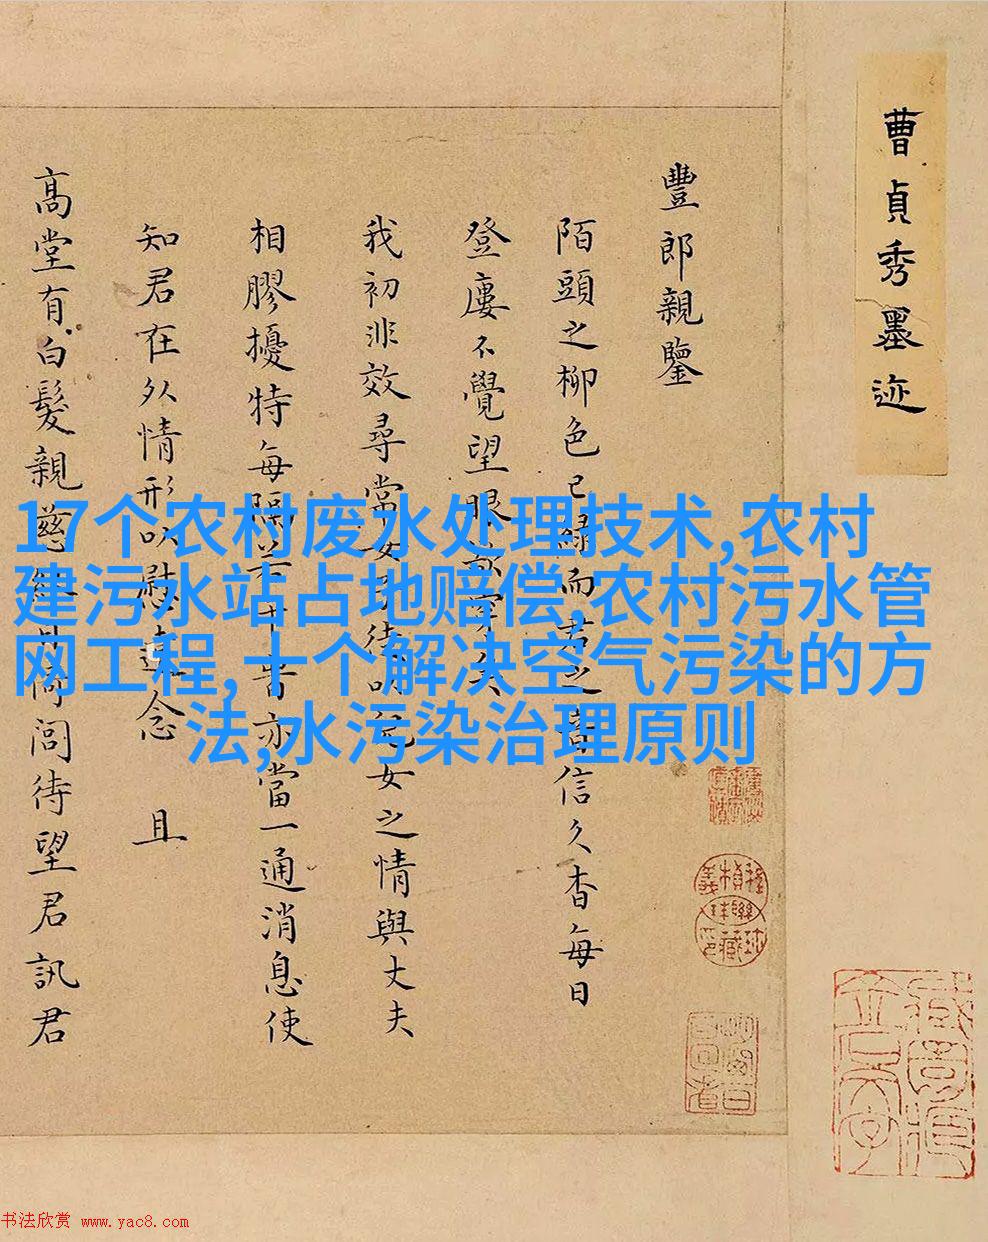 曹貞秀墨迹
豐郎親鑒
陌頭之柳色已綠而君之音信久杳每日
登廔不覺望眼欲穿矣
我初非效尋常女兒女之情與丈夫
相膠擾特每隔亦當一通消息使
知君在外情形以慰遠念 且
高堂有白髮親慈倚閭待望君訊君
17个农村废水处理技术,农村
建污水站占地赔偿,农村污水管
网工程,十个解决空气污染的方
法,水污染治理原则
书法欣赏 www.yac8.com